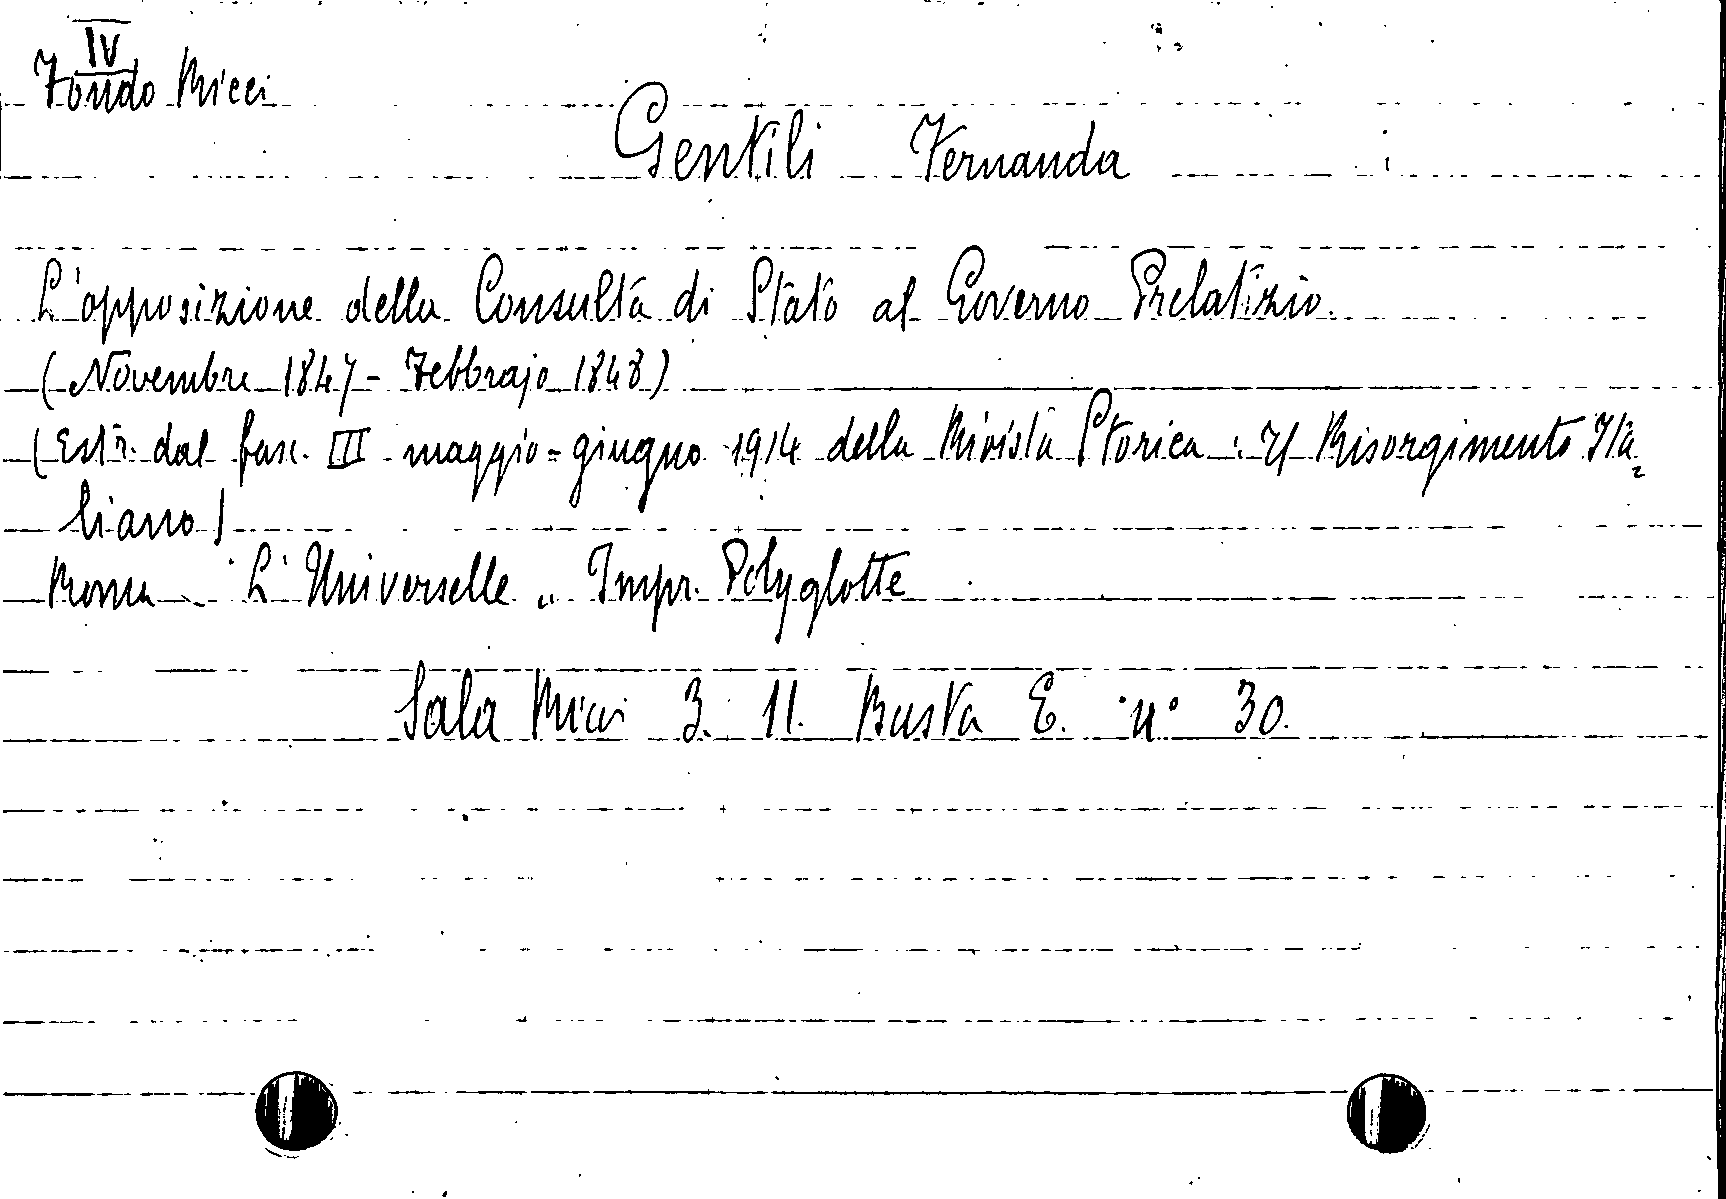 IV
Fondo Ricci
Gentili Fernanda
L'opposizione della Consulta di Stato al Governo Prelatizio.
(Novembre 1847 - Febbrajo 1848)
(Estr. dal fasc. III maggio=giugno 1914 della Rivista Storica: Il Risorgimento Ita=
liano)
Roma - L'Universelle „ Impr. Polyglotte
Sala Ricci 3. 11. Busta E. n° 30.